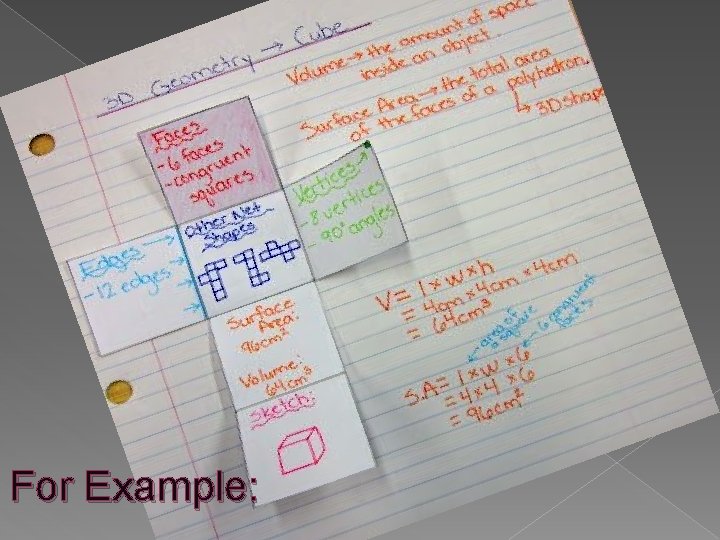 3D Geometry → Cube
Volume → the amount of space
inside an object.
Surface Area → the total area
of the faces of a polyhedron.
↳ 3D shape
Faces
- 6 faces
- congruent
squares
Vertices →
- 8 vertices
- 90° angles
Other Net
Shapes
Edges →
- 12 edges
Surface
Area:
96cm²
Volume:
64cm³
Sketch:
V = l x w x h
= 4cm x 4cm x 4cm
= 64cm³
area of
a square
6 congruent
faces
S.A = l x w x 6
= 4 x 4 x 6
= 96cm²
For Example: